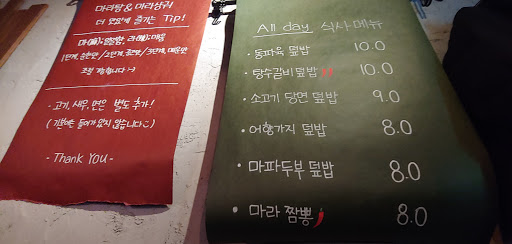 마라탕 & 마라샹궈
더 맛있게 즐기는 Tip!
마(麻);얼얼함, 라(辣);매움
1단계, 순한맛 / 2단계, 중간맛 / 3단계, 매운맛
조절 가능합니다 :-)
- 고기, 새우, 면은 별도 추가!
(기본에는 들어가 있지 않습니다 :)
- Thank YOU -
All day 식사메뉴
· 동파육 덮밥 10.0
· 탕수갈비 덮밥 10.0
· 소고기 당면 덮밥 9.0
· 어향가지 덮밥 8.0
· 마파두부 덮밥 8.0
· 마라 짬뽕 8.0